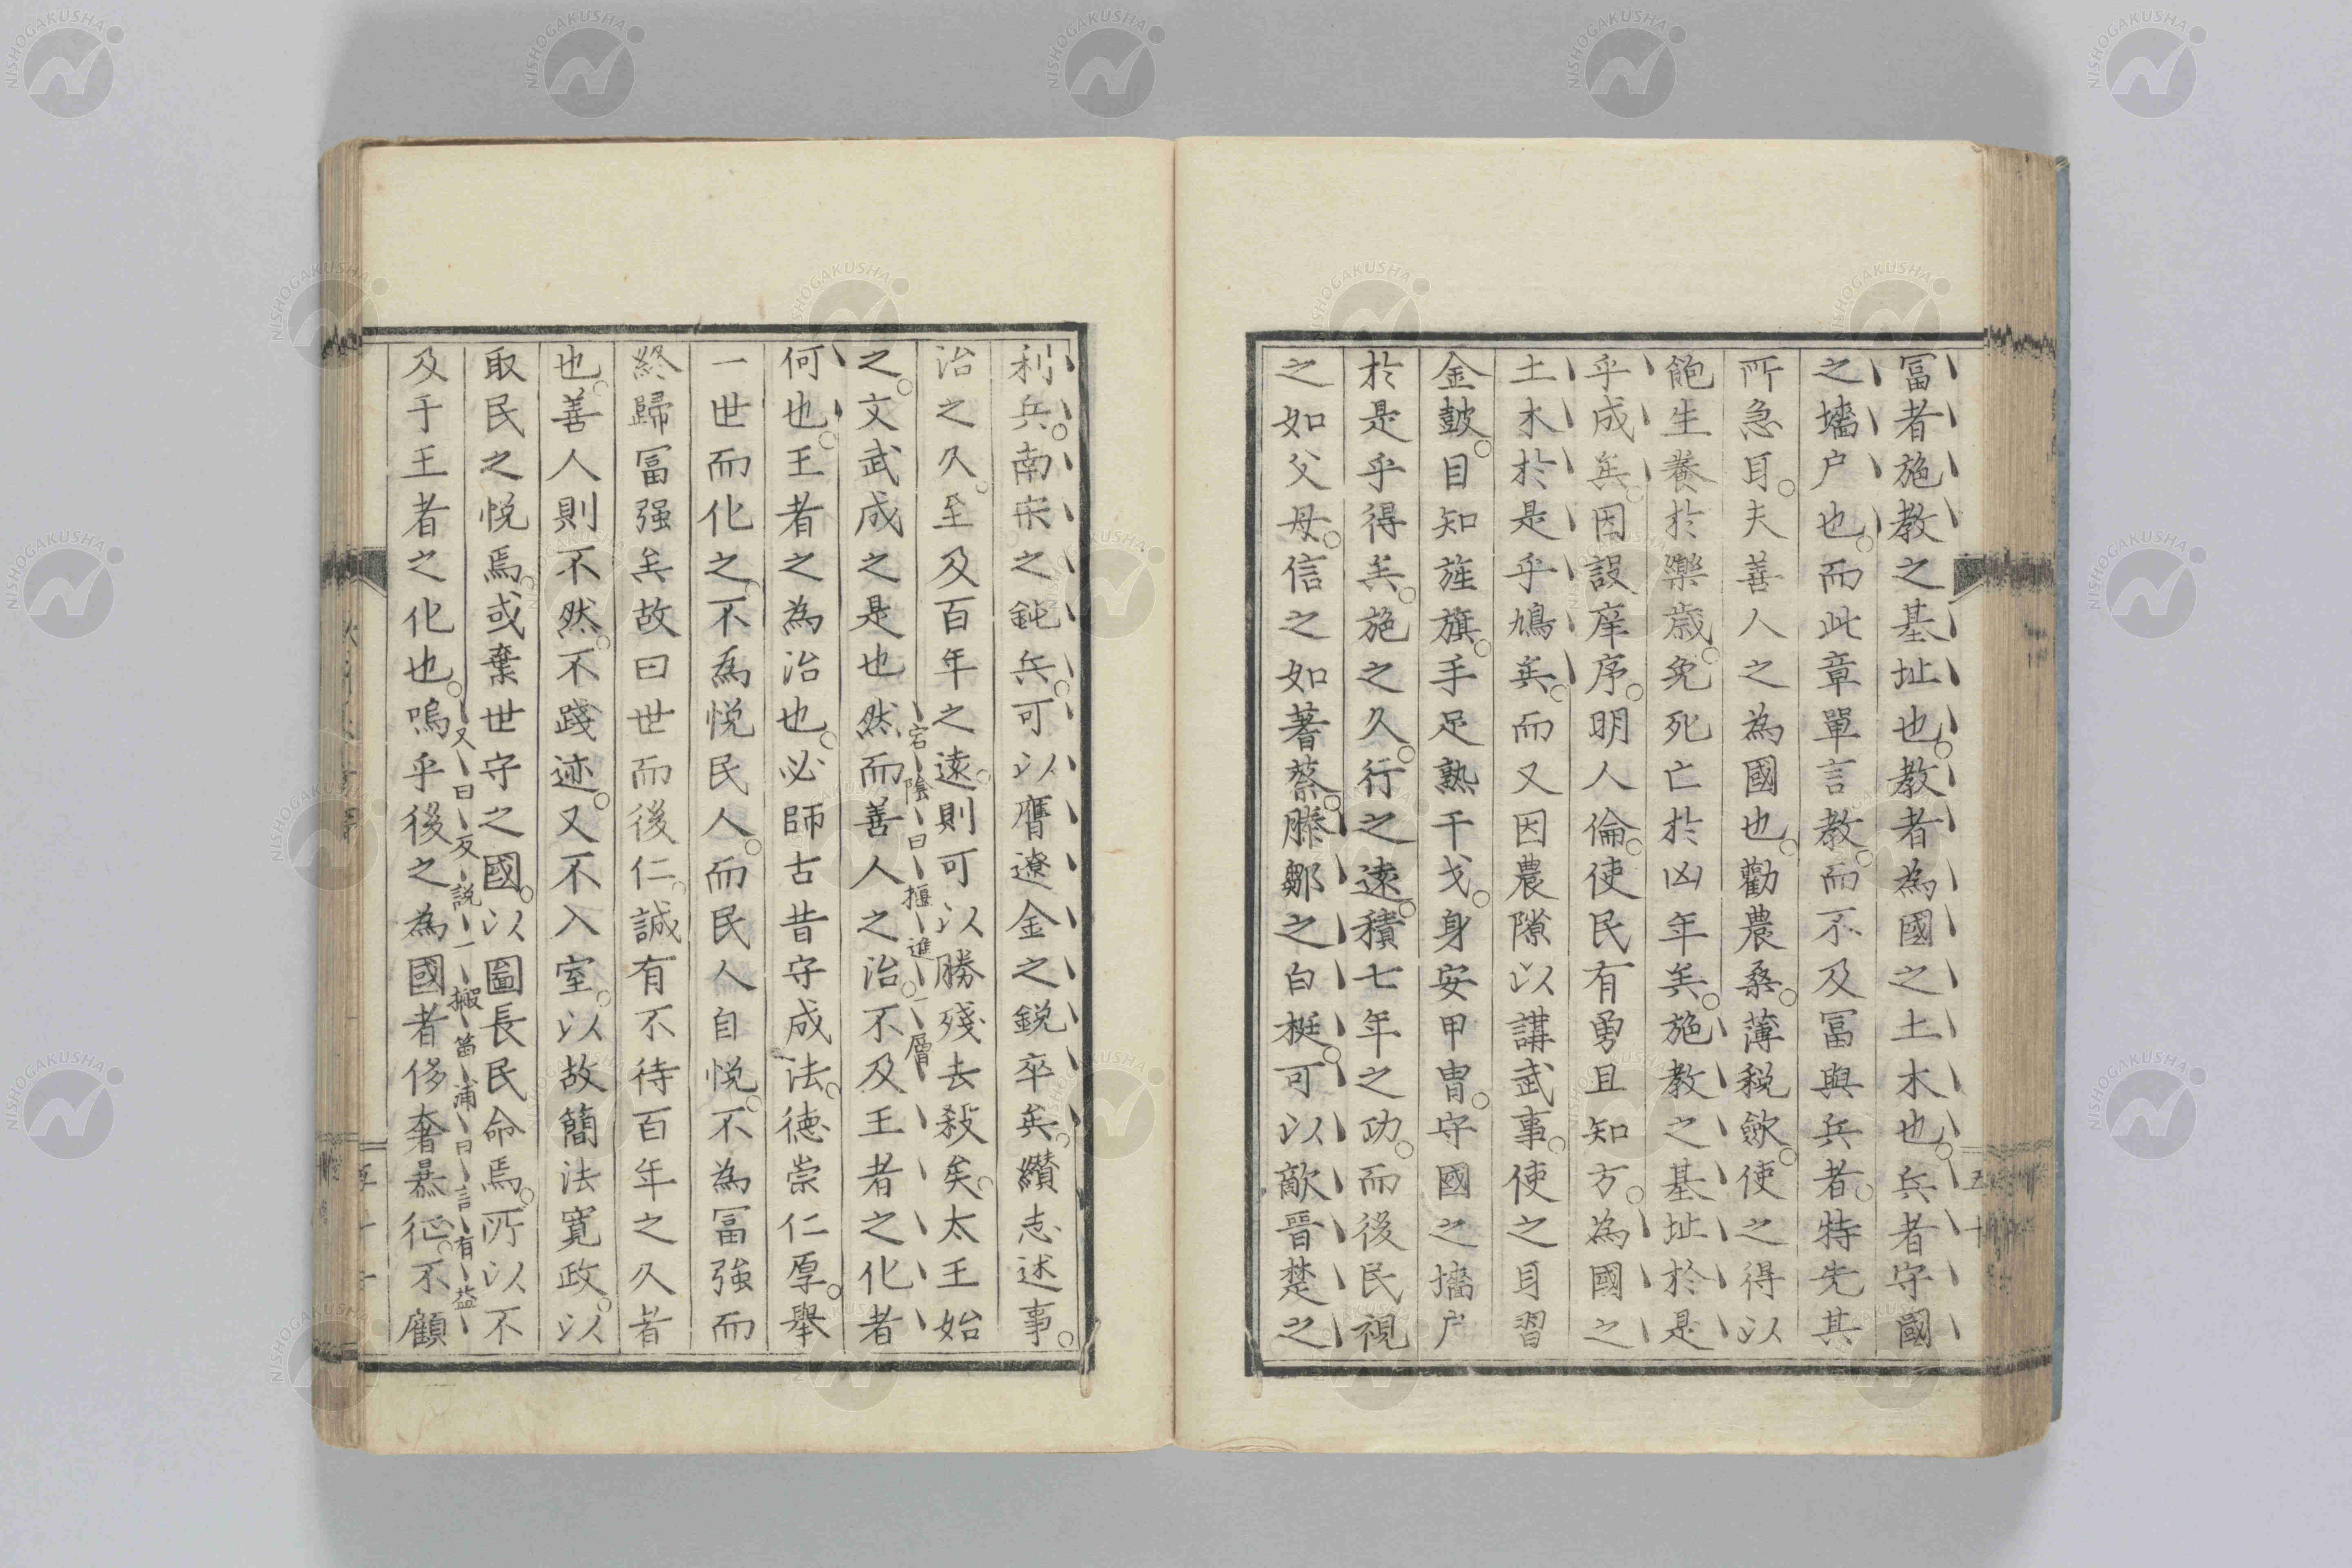 冨者施教之基址也。教者為國之土木也。兵者守國
之墻户也。而此章單言教。而不及冨與兵者。特先其
所急耳。夫善人之為國也。勸農桑。薄税斂。使之得以
飽生養於樂歳。免死亡於凶年矣。施教之基址於是
乎成矣。因設庠序。明人倫。使民有勇且知方。為國之
土木於是乎鳩矣。而又因農隙以講武事。使之耳習
金皷。目知旌旗。手足熟干戈。身安甲冑。守國之墻户
於是乎得矣。施之久。行之遠。積七年之功。而後民視
之如父母。信之如蓍蔡。滕鄒之白梃。可以敵晉楚之
利兵。南宋之鈍兵。可以膺遼金之鋭卒矣。纉志述事。
治之久。至及百年之遠。則可以勝殘去殺矣。太王始
宕陰曰揠進一層
之。文武成之是也然而善人之治。不及王者之化者
何也。王者之為治也。必師古昔守成法。徳崇仁厚。舉
一世而化之。不為悦民人。而民人自悦。不為冨強而
終歸冨强矣故曰世而後仁。誠有不待百年之久者
也。善人則不然。不踐迹。又不入室。以故簡法寛政。以
取民之悦焉。或棄世守之國。以圖長民命焉。所以不
又曰反説一搬笛浦曰言有益
及于王者之化也。嗚乎後之為國者侈奢暴征。不顧